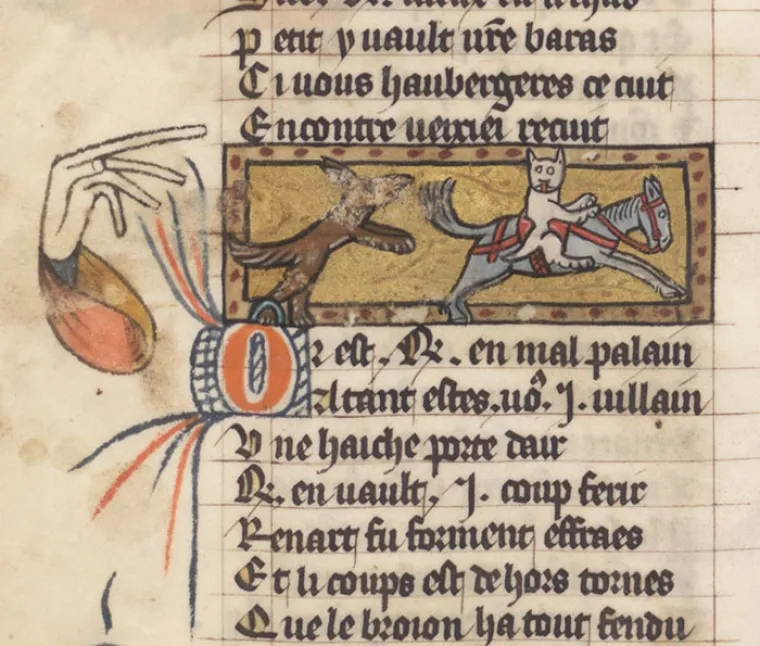 Petit vuault vr̄e baras
Ci uous haubergeres ce cuit
Encontre
Or est .R. en mal palain
Atant estes.uos .I. uillain
Vne haiche porte dair
R. en uault .I. coup ferir
Renart fu forment effraes
Et li coups est dehors tornes
Que le broion ha tout fendu